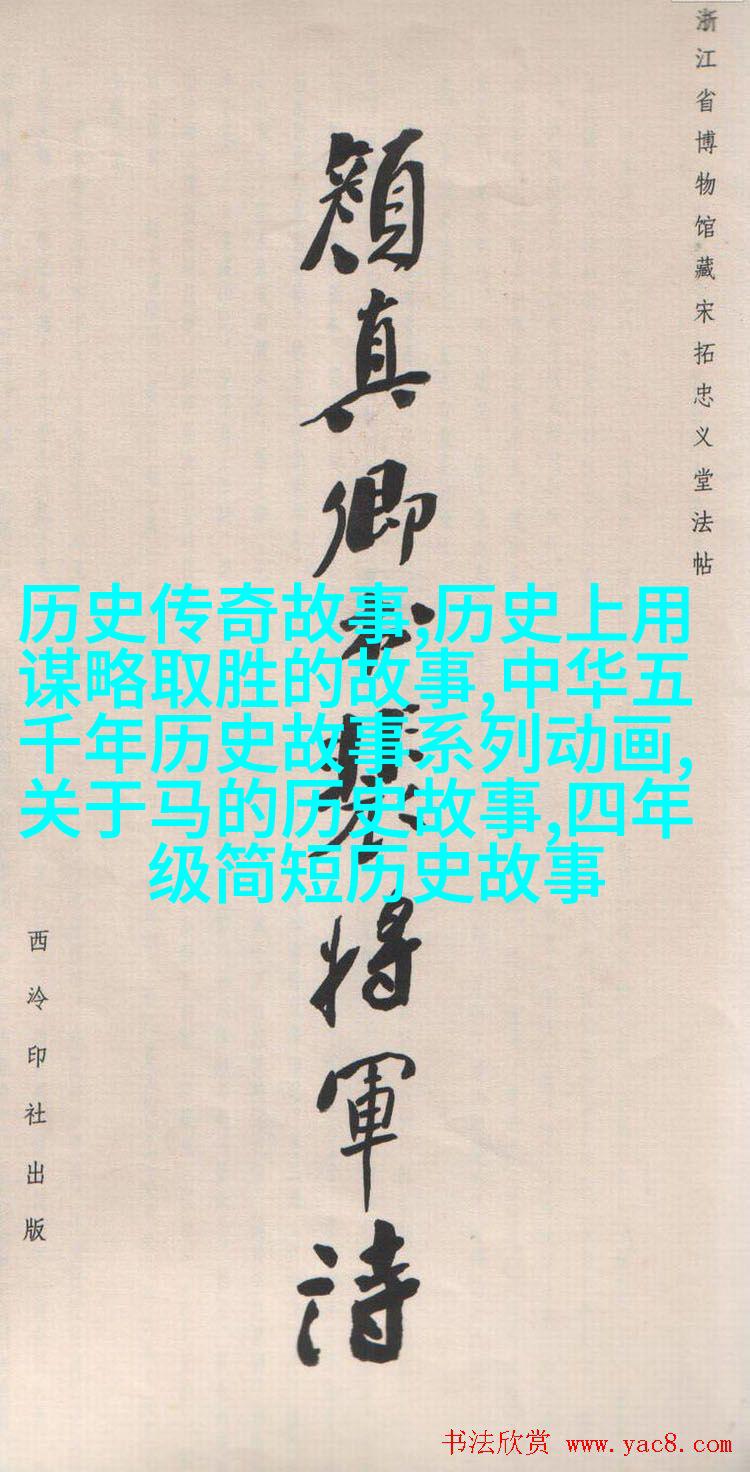 浙江省博物馆藏宋拓忠义堂法帖
顏真卿书裴将軍詩
西泠印社出版
历史传奇故事,历史上用
谋略取胜的故事,中华五
千年历史故事系列动画,
关于马的历史故事,四年
级简短历史故事
书法欣赏 www.yac8.com